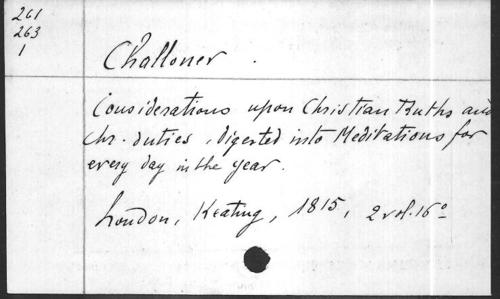 261
263
1
Challoner.
Considerations upon Christian Truths and
Chr. duties, digested into Meditations for
every day in the year.
London, Keating, 1815, 2 vol. 16º